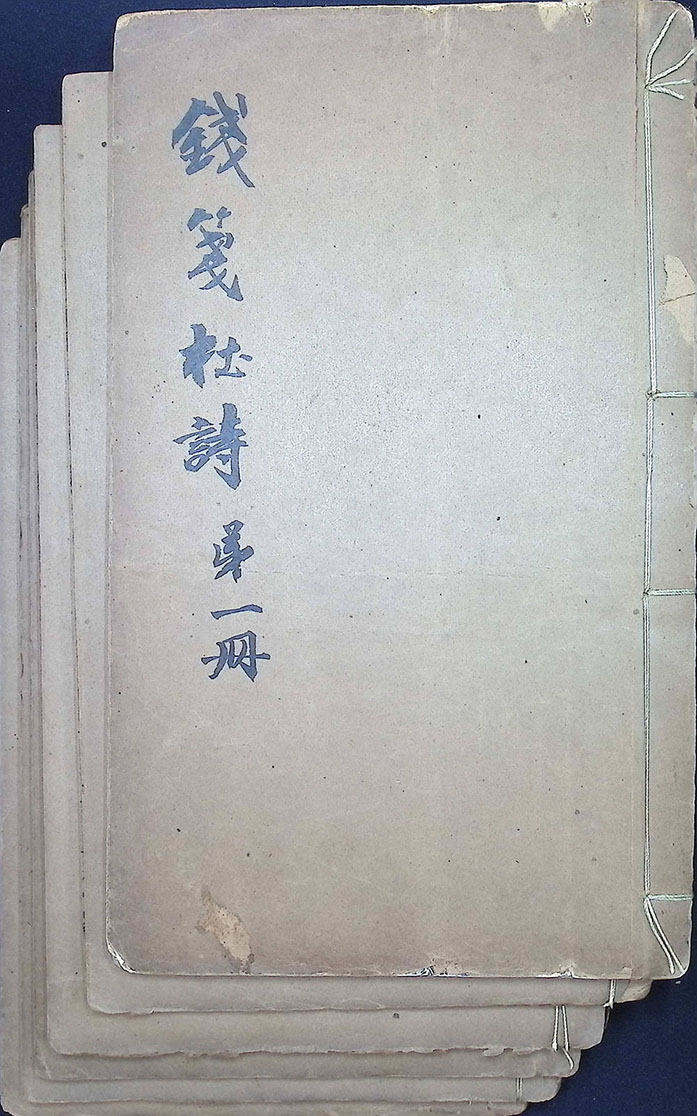 錢箋杜詩第一冊